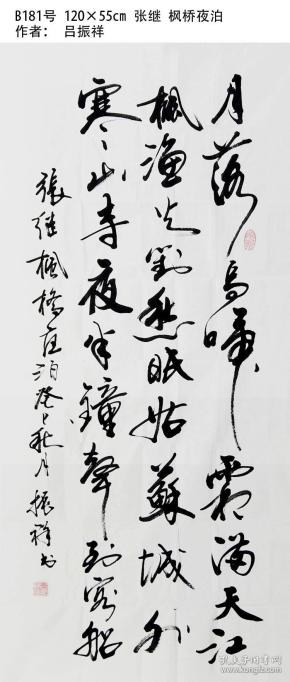 B181号 120×55cm 张继 枫桥夜泊
作者： 吕振祥
月落烏啼霜滿天江
楓漁火對愁眠姑蘇城外
寒山寺夜半鐘聲到客船
張继楓橋夜泊癸巳秋月振祥书